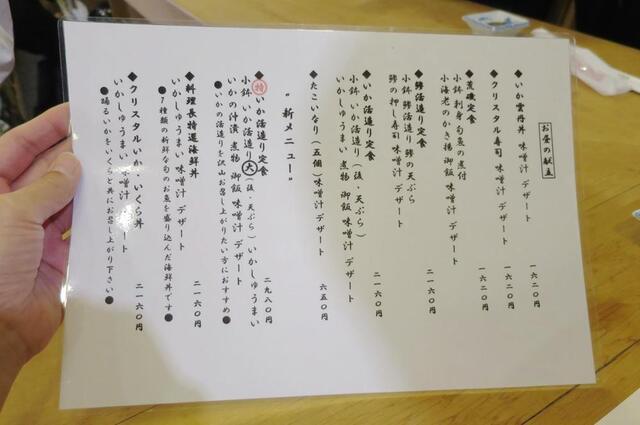 お昼の献立
◆いか雲丹丼 味噌汁 デザート
一六二〇円
◆クリスタル寿司 味噌汁 デザート
一六二〇円
◆荒磯定食
小鉢 刺身 旬魚の煮付
小海老のかき揚 御飯 味噌汁 デザート
一六二〇円
◆鯵活造り定食
小鉢 鯵活造り 鯵の天ぷら
鯵の押し寿司 味噌汁 デザート
二一六〇円
◆いか活造り定食
小鉢 いか活造り(後・天ぷら)
いかしゅうまい 煮物 御飯 味噌汁 デザート
二一六〇円
◆たこいなり(五個)味噌汁 デザート
六五〇円
"新メニュー"
◆特いか活造り定食
小鉢 いか活造り大(後・天ぷら)いかしゅうまい
いかの汁漬 煮物 御飯 味噌汁 デザート
二九八〇円
●いかの活造りを沢山お召し上がりたい方におすすめ●
◆料理長特選海鮮丼
いかしゅうまい 味噌汁 デザート
二一六〇円
●7種類の新鮮な旬のお魚を盛り込んだ海鮮丼です●
◆クリスタルいか・いくら丼
いかしゅうまい 味噌汁 デザート
二一六〇円
●踊るいかをいくらと共にお召し上がり下さい●